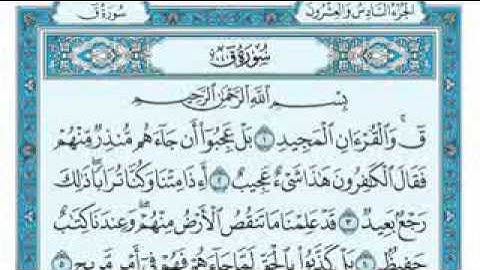 سُورَةُ قٓ
الجُزْءُ السَّادِسُ وَالعِشْرُونَ
سُورَةُ قٓ
بِسْمِ ٱللَّهِ ٱلرَّحْمَٰنِ ٱلرَّحِيمِ
قٓ ۚ وَٱلْقُرْءَانِ ٱلْمَجِيدِ ١ بَلْ عَجِبُوٓا۟ أَن جَآءَهُم مُّنذِرٌ مِّنْهُمْ
فَقَالَ ٱلْكَٰفِرُونَ هَٰذَا شَىْءٌ عَجِيبٌ ٢ أَءِذَا مِتْنَا وَكُنَّا تُرَابًا ۖ ذَٰلِكَ
رَجْعٌۢ بَعِيدٌ ٣ قَدْ عَلِمْنَا مَا تَنقُصُ ٱلْأَرْضُ مِنْهُمْ ۖ وَعِندَنَا كِتَٰبٌ
حَفِيظٌۢ ٤ بَلْ كَذَّبُوا۟ بِٱلْحَقِّ لَمَّا جَآءَهُمْ فَهُمْ فِىٓ أَمْرٍ مَّرِيجٍ ٥